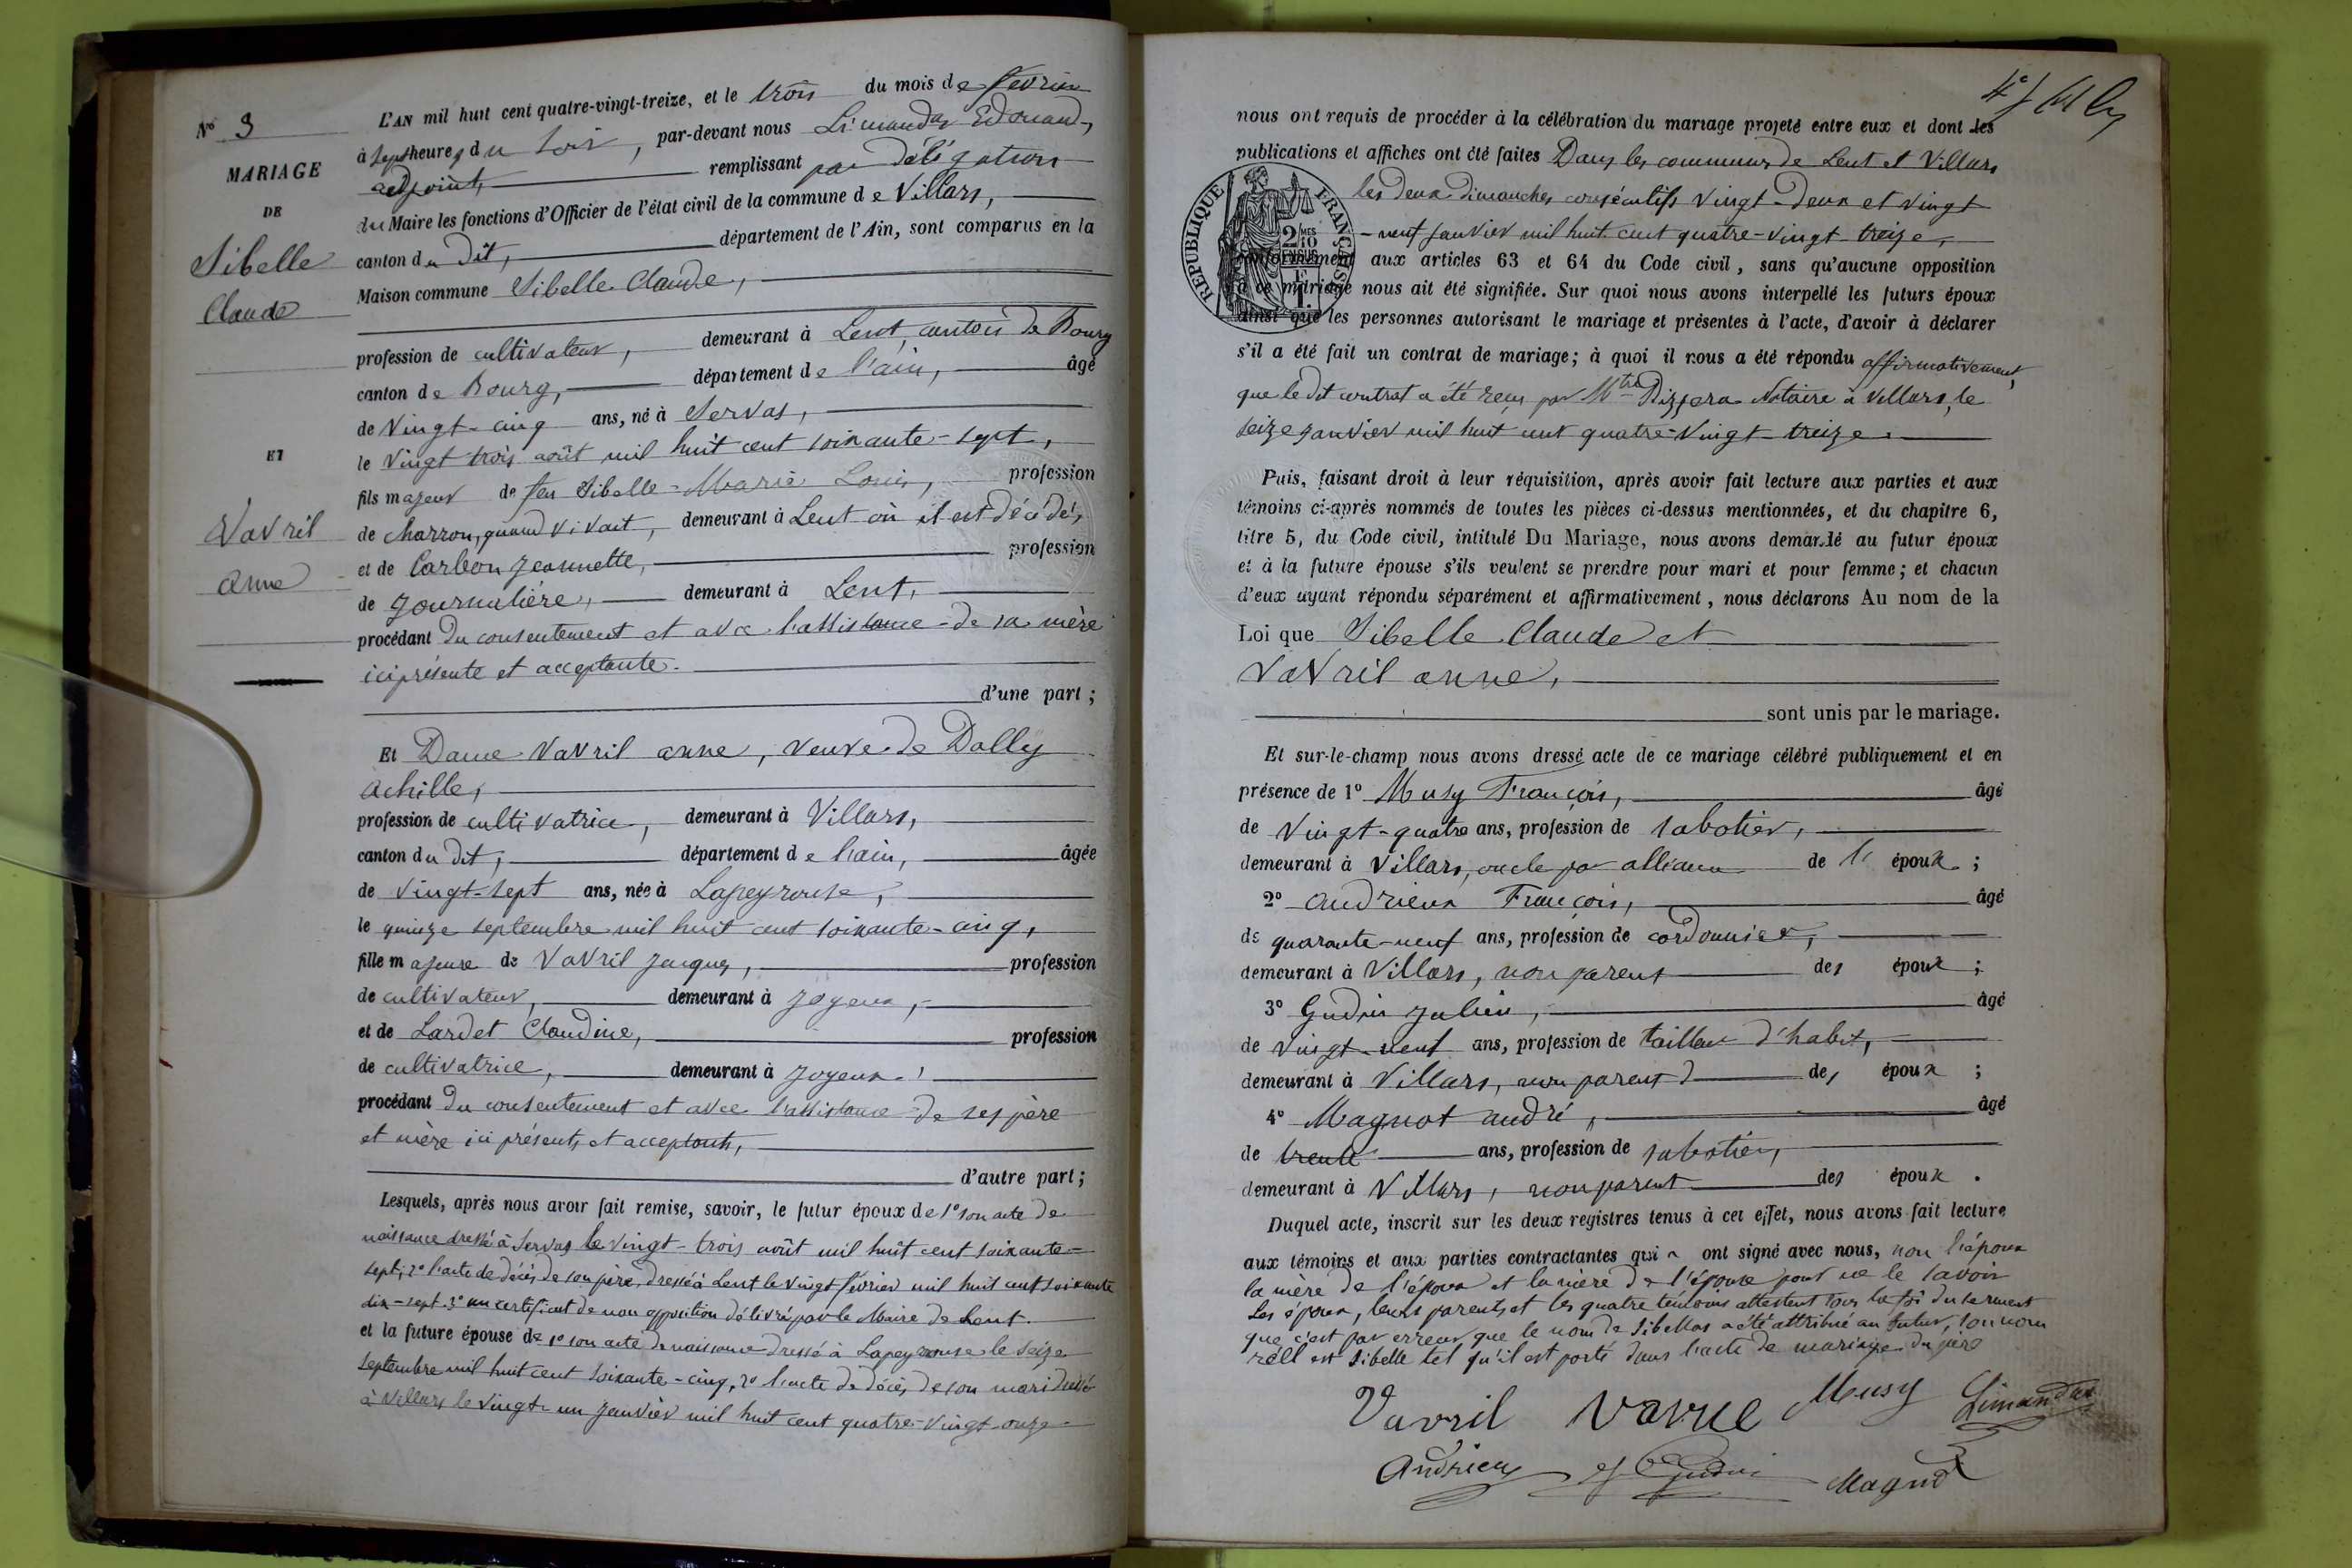 N° 3
MARIAGE
DE
Sibelle
Claude
ET
Vavril
anne
L'AN mil huit cent quatre-vingt-treize, et le trois du mois de février
à sept heures du soir, par-devant nous Limandas Edouard,
adjoint, remplissant par délégation
du Maire les fonctions d'Officier de l'état civil de la commune de Villars,
canton du dit, département de l'Ain, sont comparus en la
Maison commune Sibelle Claude,
profession de cultivateur, demeurant à Lent, canton de Bourg
canton de Bourg, département de l'ain, âgé
de Vingt-cinq ans, né à Servas,
le Vingt trois août mil huit cent soixante-sept,
fils majeur de feu Sibelle Marie Louis, profession
de charron, quand vivait, demeurant à Lent où il est décédé,
et de Carbon Jeannette, profession
de Journalière, demeurant à Lent,
procédant du consentement et avec l'assistance de sa mère
ici présente et acceptante.
d'une part ;
Et Dame Vavril anne, veuve de Dolly
achille,
profession de cultivatrice, demeurant à Villars,
canton du dit, département de l'ain, âgée
de vingt-sept ans, née à Lapeyrouse,
le quinze septembre mil huit cent soixante-cinq,
fille majeure de Vavril Jacques, profession
de cultivateur, demeurant à Joyeux,
et de Lardet Claudine, profession
de cultivatrice, demeurant à Joyeux,
procédant du consentement et avec l'assistance de ses père
et mère ici présents et acceptants,
d'autre part ;
Lesquels, après nous avoir fait remise, savoir, le futur époux de 1° son acte de
naissance dressé à Servas le vingt-trois août mil huit cent soixante-
sept; 2° l'acte de décès de son père, dressé à Lent le vingt février mil huit cent soixante
dix-sept. 3° un certificat de non opposition délivré par le Maire de Lent.
et la future épouse de 1° son acte de naissance dressé à Lapeyrouse le seize
septembre mil huit cent soixante-cinq, 2° l'acte de décès de son mari dressé
à Villars le vingt-un janvier mil huit cent quatre-vingt-onze
4e
nous ont requis de procéder à la célébration du mariage projeté entre eux et dont les
publications et affiches ont été faites Dans les communes de Lent et Villars
les deux dimanches consécutifs vingt-deux et vingt
-neuf janvier mil huit cent quatre-vingt-treize,
RÉPUBLIQUE FRANÇAISE
2/10 MES EN SUS
1 F.
conformément aux articles 63 et 64 du Code civil, sans qu'aucune opposition
à ce mariage nous ait été signifiée. Sur quoi nous avons interpellé les futurs époux
ainsi que les personnes autorisant le mariage et présentes à l'acte, d'avoir à déclarer
s'il a été fait un contrat de mariage; à quoi il nous a été répondu affirmativement,
que le dit contrat a été reçu par Mtre Notaire à Villars, le
seize janvier mil huit cent quatre-vingt-treize.
Puis, faisant droit à leur réquisition, après avoir fait lecture aux parties et aux
témoins ci-après nommés de toutes les pièces ci-dessus mentionnées, et du chapitre 6,
titre 5, du Code civil, intitulé Du Mariage, nous avons demandé au futur époux
et à la future épouse s'ils veulent se prendre pour mari et pour femme; et chacun
d'eux ayant répondu séparément et affirmativement, nous déclarons Au nom de la
Loi que Sibelle Claude et
Vavril anne,
sont unis par le mariage.
Et sur-le-champ nous avons dressé acte de ce mariage célébré publiquement et en
présence de 1° Musy François, âgé
de Vingt-quatre ans, profession de sabotier,
demeurant à Villars, oncle par alliance de l' époux ;
2° andrieux François, âgé
de quarante-neuf ans, profession de cordonnier,
demeurant à Villars, non parent des époux ;
3° Gudin Julien, âgé
de vingt-neuf ans, profession de tailleur d'habit,
demeurant à Villars, non parent des époux ;
4° Magnot andré, âgé
de trente ans, profession de sabotier,
demeurant à Villars, non parent des époux .
Duquel acte, inscrit sur les deux registres tenus à cet effet, nous avons fait lecture
aux témoins et aux parties contractantes qui ont signé avec nous, non l'époux
la mère de l'époux et la mère de l'épouse pour ne le savoir
Les époux, leurs parents et les quatre témoins attestent sous la foi du serment
que c'est par erreur que le nom de Sibellas a été attribué au futur, son nom
réel est Sibelle tel qu'il est porté dans l'acte de mariage du père
Vavril Vavril Musy Limandas
Andrieux J Gudin Magnot